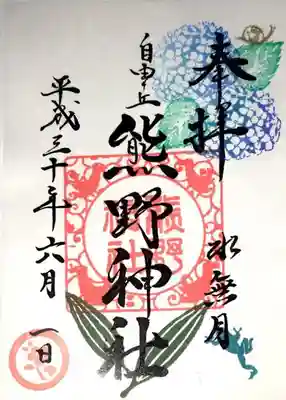 奉拝
水無月
自由丘
熊野神社
平成三十年六月一日
熊野神社